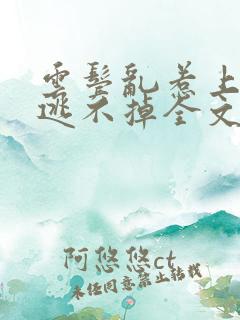 雲鬓亂惹上
逃不掉全文
阿悠悠ct
未经同意禁止转载